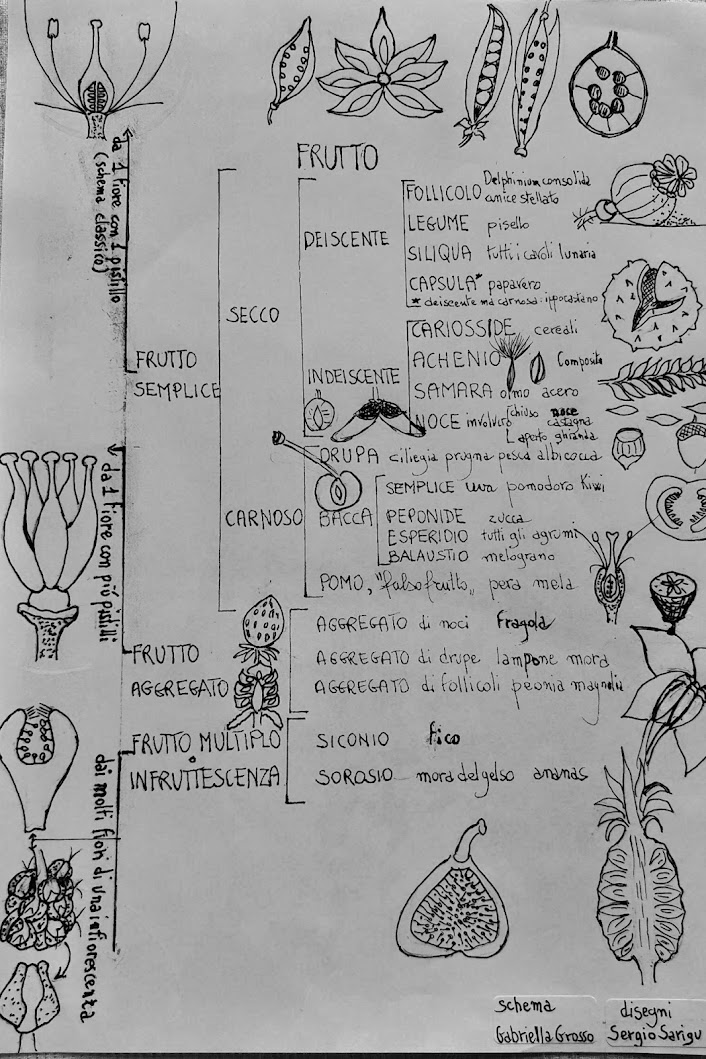 FRUTTO
da 1 fiore con 1 pistillo
(schema classico)
FRUTTO
SEMPLICE
SECCO
DEISCENTE
FOLLICOLO Delphinium consolida
anice stellato
LEGUME pisello
SILIQUA tutti i cavoli lunaria
CAPSULA* papavero
* deiscente ma carnosa: ippocastano
INDEISCENTE
CARIOSSIDE cereali
ACHENIO Composite
SAMARA olmo acero
NOCE involucro chiuso noce
castagna
aperto ghianda
CARNOSO
DRUPA ciliegia prugna pesca albicocca
BACCA
SEMPLICE uva pomodoro Kiwi
PEPONIDE zucca
ESPERIDIO tutti gli agrumi
BALAUSTIO melograno
POMO, "falso frutto" pera mela
da 1 fiore con più pistilli
FRUTTO
AGGREGATO
AGGREGATO di noci fragola
AGGREGATO di drupe lampone mora
AGGREGATO di follicoli peonia magnolia
dai molti fiori di una infiorescenza
FRUTTO MULTIPLO
o
INFRUTTESCENZA
SICONIO fico
SOROSIO mora del gelso ananas
schema
Gabriella Grosso
disegni
Sergio Sarigu